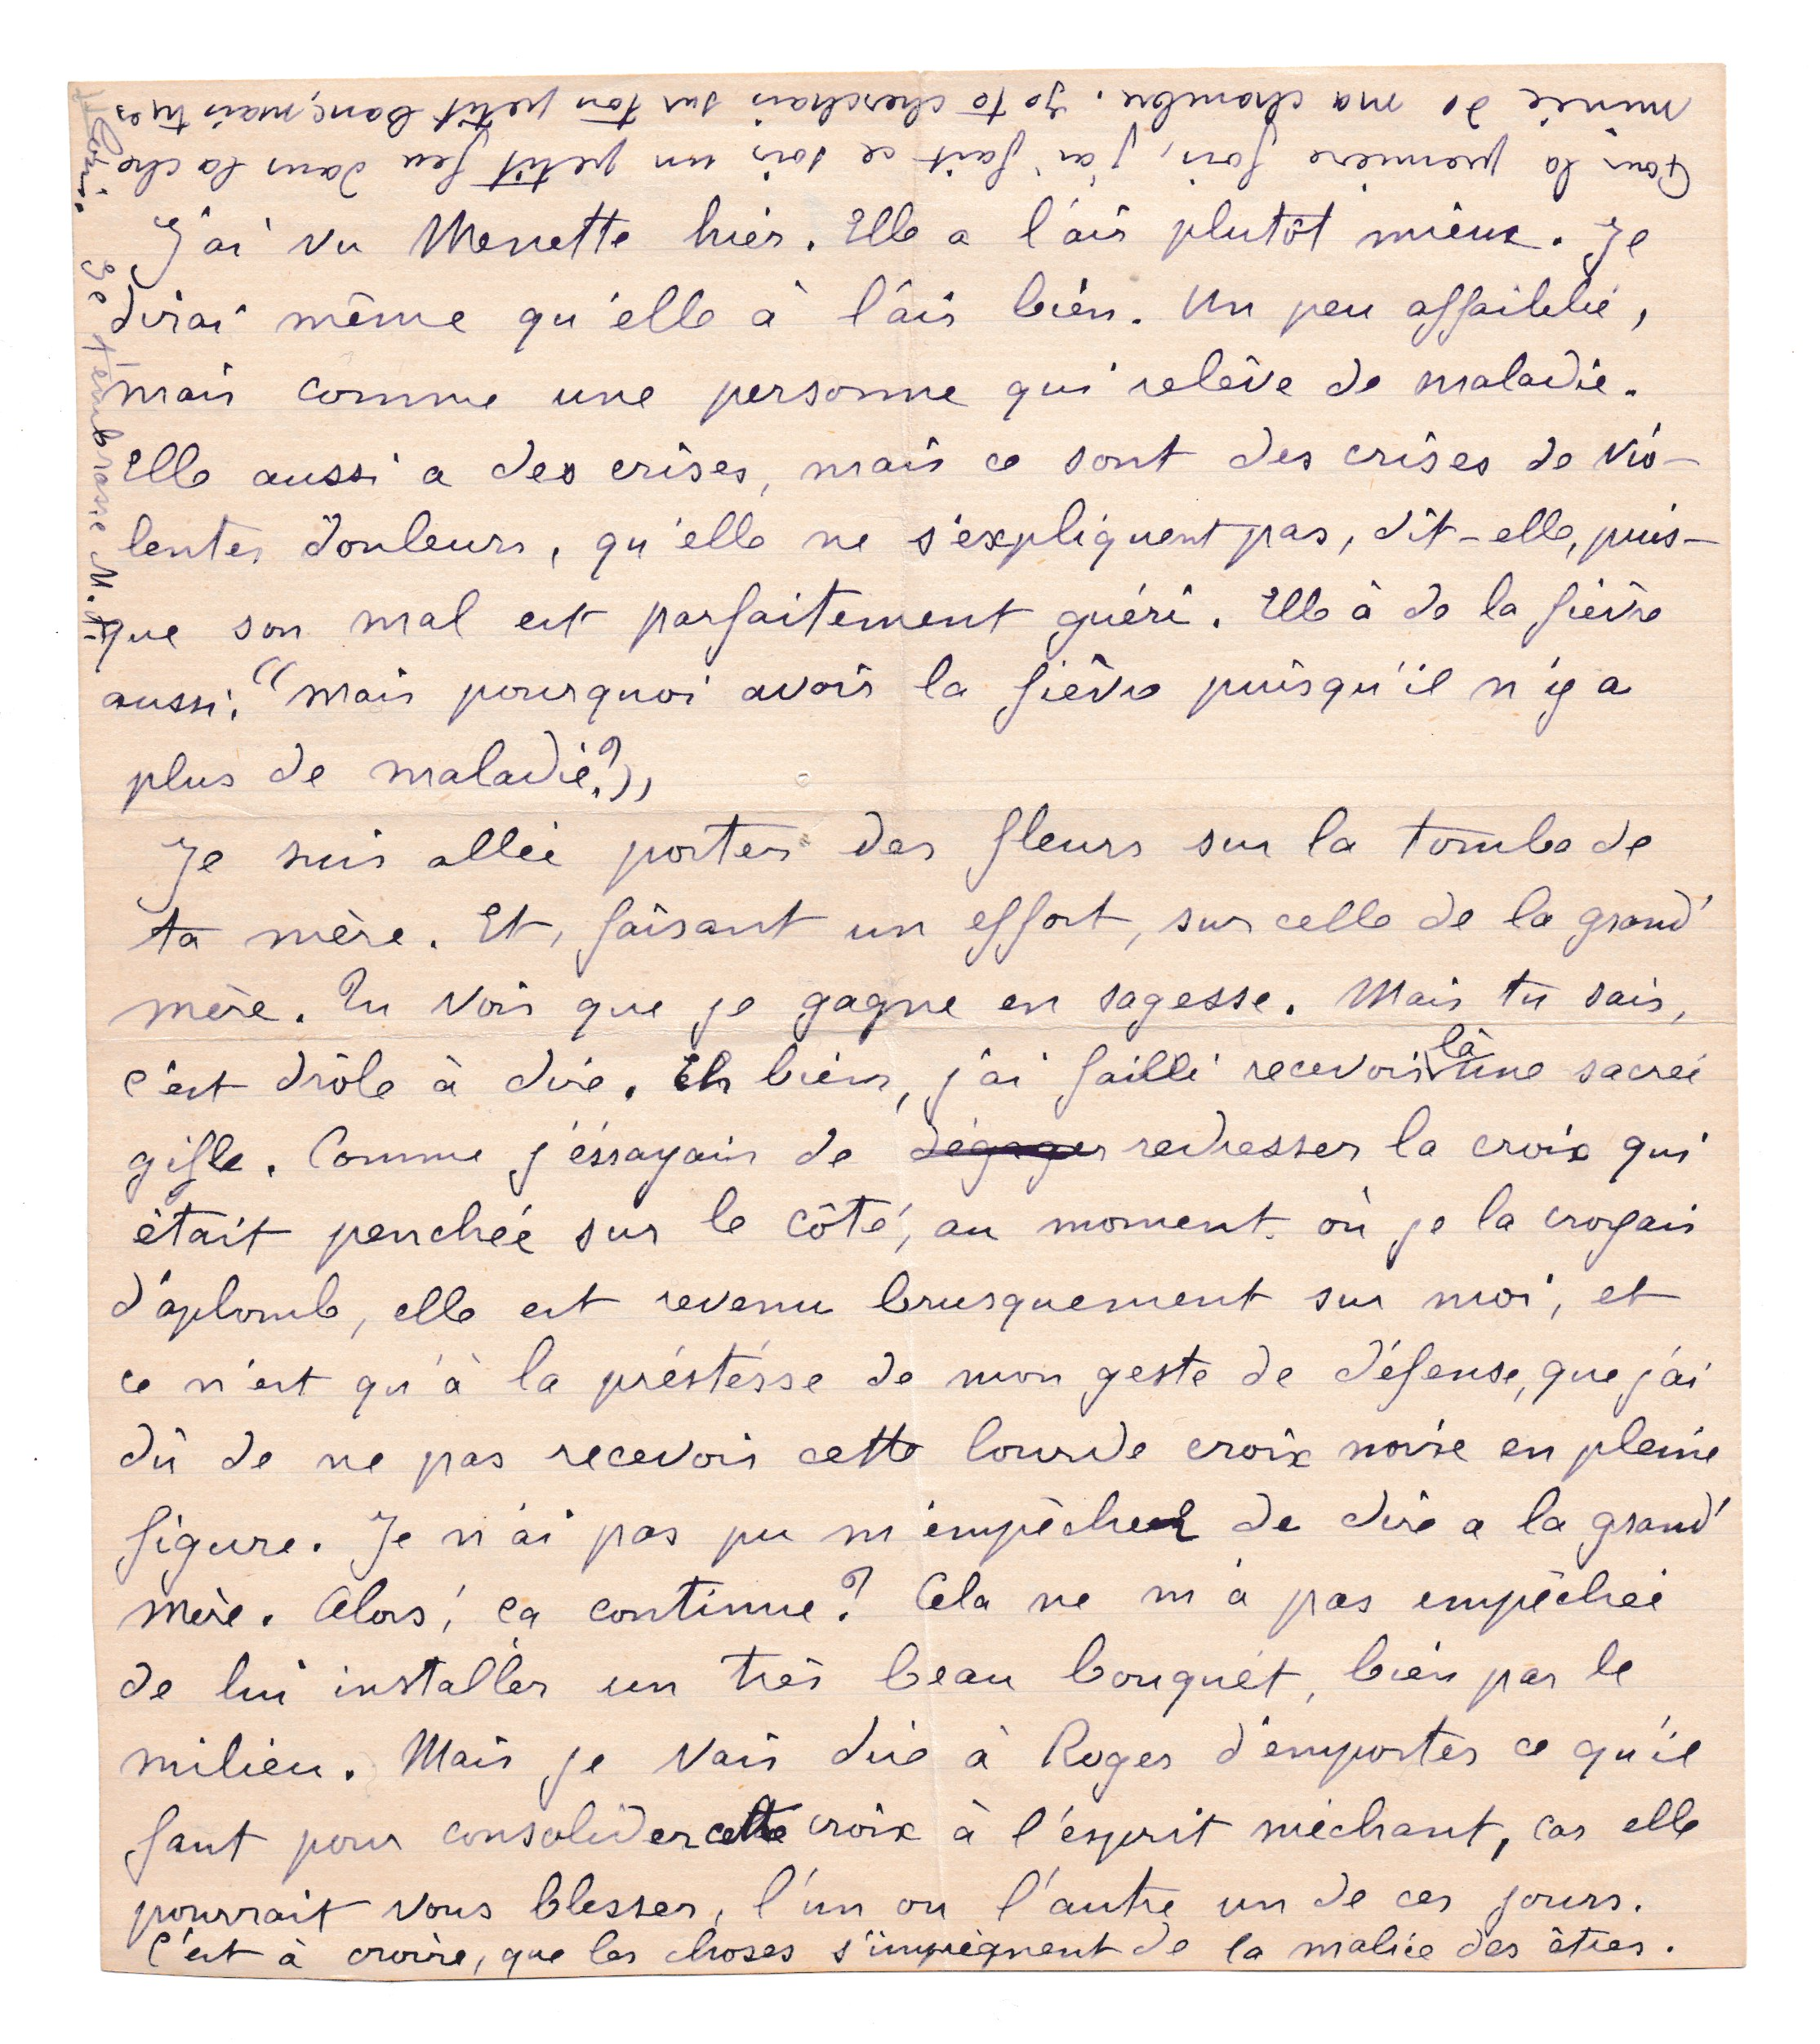 J'ai vu Menette hier. Elle a l'air plutôt mieux. Je
dirai même qu'elle à l'air bien. Un peu affaiblie,
mais comme une personne qui relève de maladie.
Elle aussi a des crises, mais ce sont des crises de vio-
lentes douleurs, qu'elle ne s'expliquent pas, dit-elle, puis-
que son mal est parfaitement guéri. Elle à de la fièvre
aussi. "mais pourquoi avoir la fièvre puisqu'il n'y a
plus de maladie?"
Je suis allée porter des fleurs sur la tombe de
ta mère. Et, faisant un effort, sur celle de la grand'
mère. Tu vois que je gagne en sagesse. Mais tu sais,
c'est drôle à dire. Eh bien, j'ai failli recevoir là une sacrée
gifle. Comme j'éssayais de dégager redresser la croix qui
était penchée sur le côté, au moment où je la croyais
d'aplomb, elle est revenu brusquement sur moi, et
ce n'est qu'à la préstésse de mon geste de défense, que j'ai
dû de ne pas recevoir cette lourde croix noire en pleine
figure. Je n'ai pas pu m'empêcher de dire a la grand'
mère. Alors, ça continue? Cela ne m'a pas empêchée
de lui installer un très beau bouquét, bien par le
milieu. Mais je vais dire à Roger d'emporter ce qu'il
faut pour consolider cette croix à l'esprit méchant, car elle
pourrait vous blesser, l'un ou l'autre un de ces jours.
C'est à croire, que les choses s'imprègnent de la malice des êtres.
Pour la première fois, j'ai fait ce soir un petit feu dans la che
minée de ma chambre. Je te cherchais sur ton petit banc, mais tu es
Je t'embrasse M.